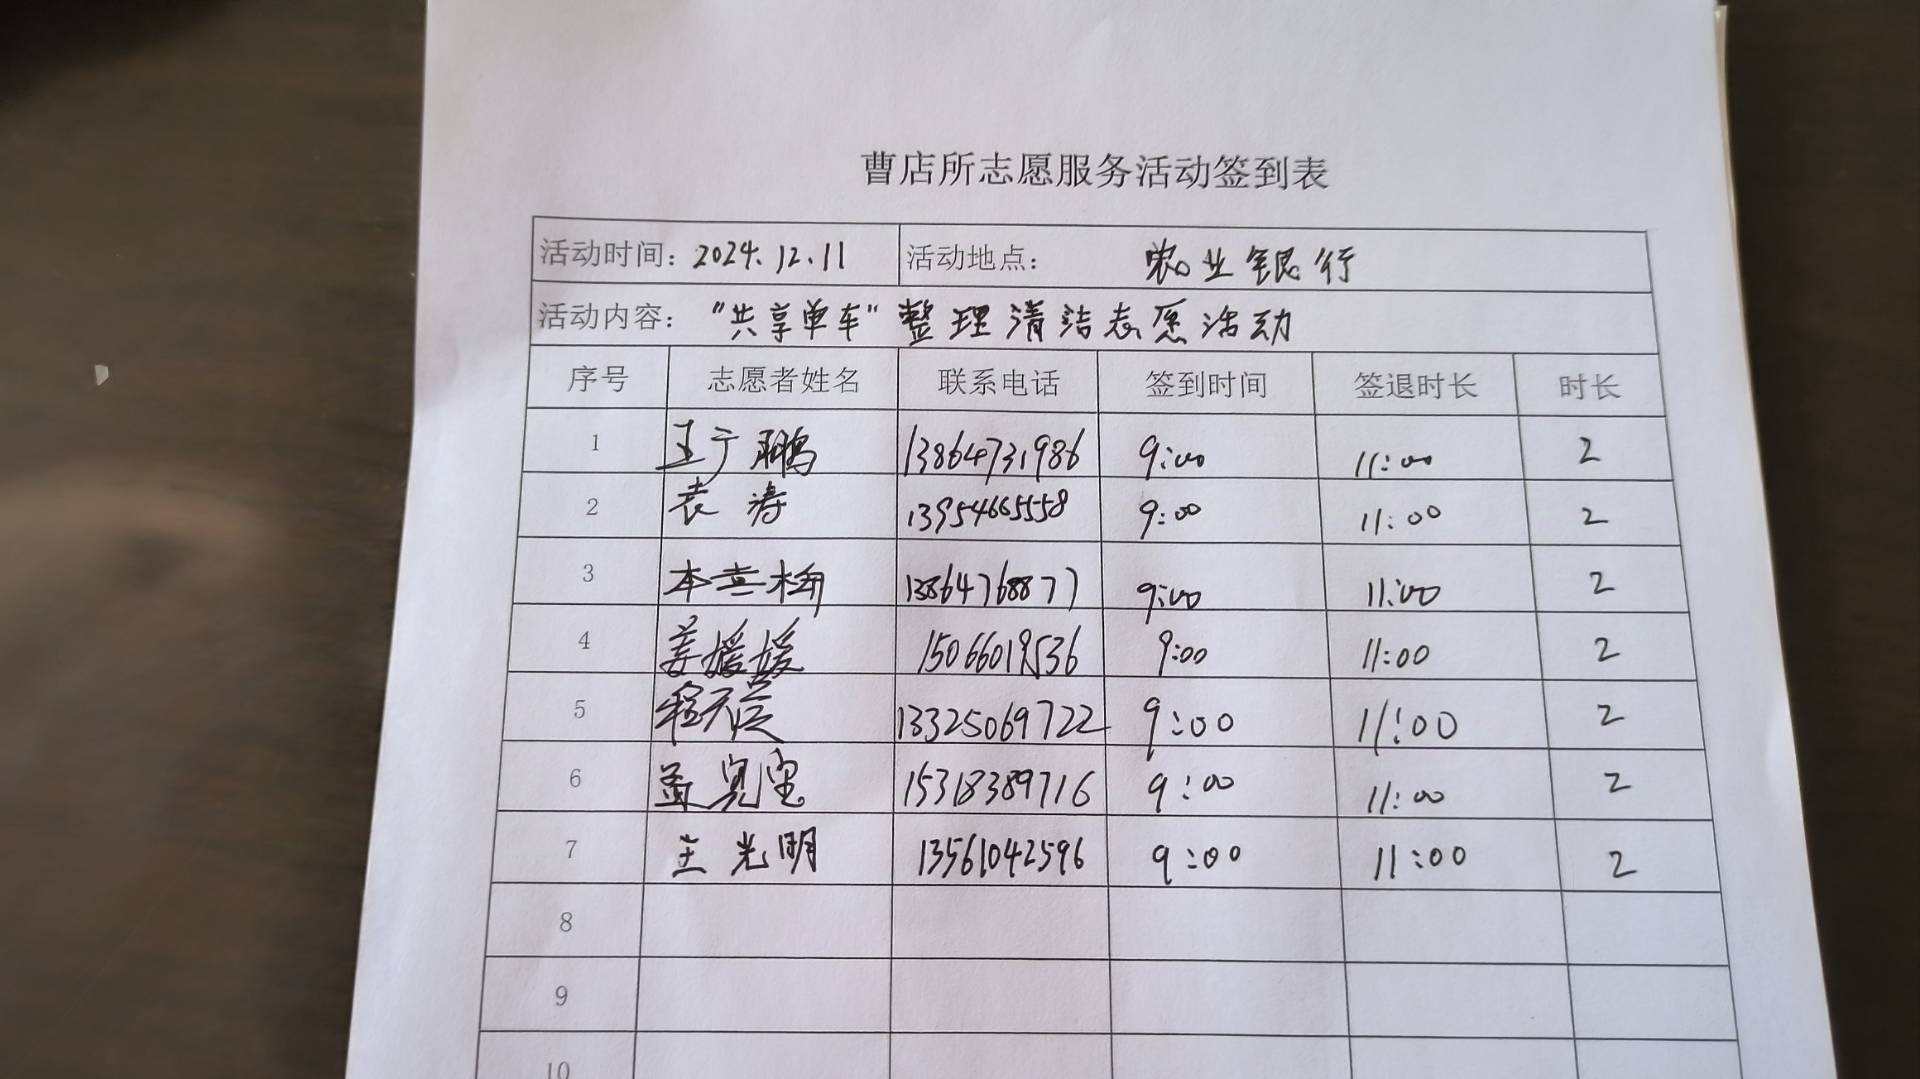 曹店所志愿服务活动签到表
活动时间：2024.12.11 活动地点： 农业银行
活动内容："共享单车"整理清洁志愿活动
序号 志愿者姓名 联系电话 签到时间 签退时长 时长
1 王广鹏 13864731986 9:00 11:00 2
2 袁涛 13954665558 9:00 11:00 2
3 13864768877 9:00 11:00 2
4 姜媛媛 15066019536 9:00 11:00 2
5 13325069722 9:00 11:00 2
6 15318389716 9:00 11:00 2
7 王光明 13561042596 9:00 11:00 2
8
9
10